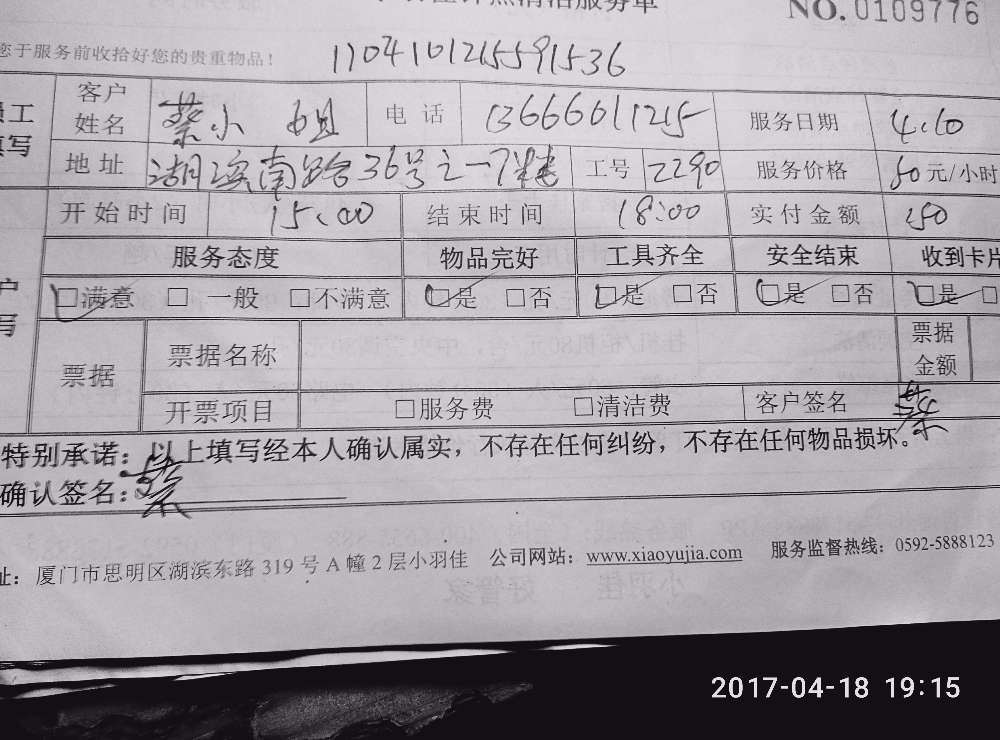 清洁服务单 NO. 0109776
您于服务前收拾好您的贵重物品！ 1704101215591536
员工填写 客户姓名 蔡小姐 电话 13666011215 服务日期 4.10
地址 湖滨南路36号之一7楼 工号 2290 服务价格 50元/小时
开始时间 15:00 结束时间 18:00 实付金额 150
服务态度 物品完好 工具齐全 安全结束 收到卡片
□满意 □一般 □不满意 □是 □否 □是 □否 □是 □否 □是 □
票据 票据名称 票据金额
开票项目 □服务费 □清洁费 客户签名 蔡
特别承诺：以上填写经本人确认属实，不存在任何纠纷，不存在任何物品损坏。
确认签名：蔡
址：厦门市思明区湖滨东路 319 号 A 幢 2 层小羽佳 公司网站：www.xiaoyujia.com 服务监督热线：0592-5888123
2017-04-18 19:15